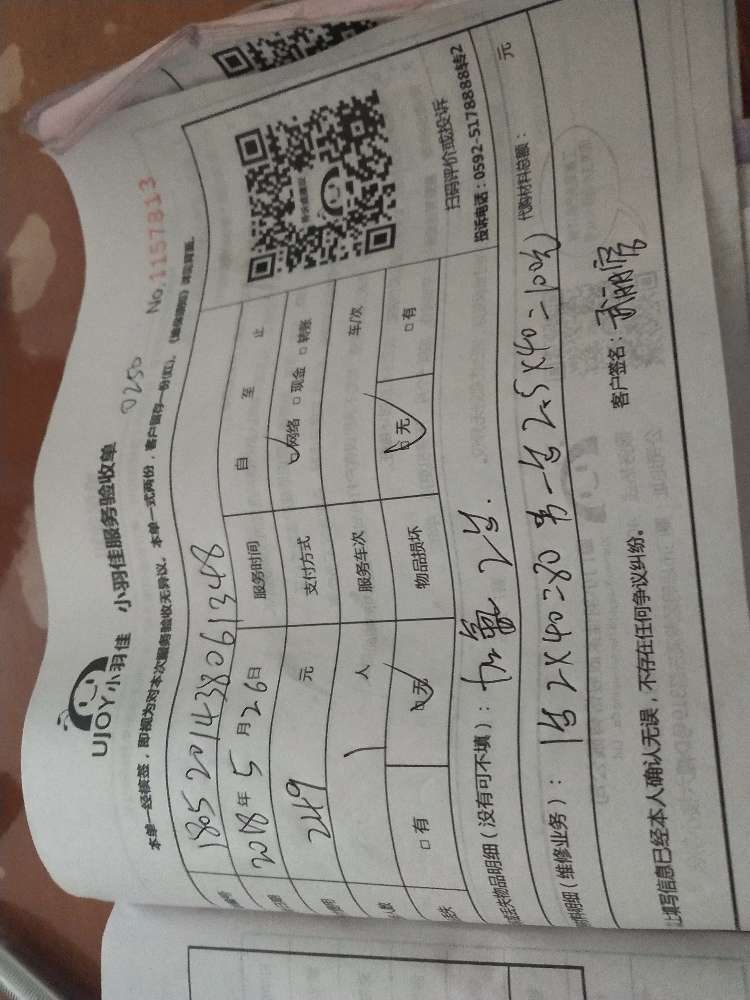 UJOY小羽佳 小羽佳服务验收单
0250
No.1157813
本单一经核签，即视为对本次服务验收无异议。本单一式两份，客户留存一份(红)。
180520143806 1348
2018年5月26日 服务时间 自 至 止
249 元 支付方式 网络 现金 转账
1 人 服务车次 车/次
有 无 物品损坏 无 有
扫码评价或投诉
投诉电话：0592-5178888转2
丢失物品明细（没有可不填）： 加 2台.
明细（维修业务）： 1台2X40=80 另一台2.5X40=100元
代购材料总额： 元
填写信息已经本人确认无误，不存在任何争议纠纷。 客户签名：